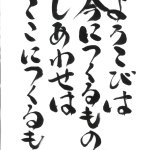 よろこびは
今につくるもの
しあわせは
ここにつくるも